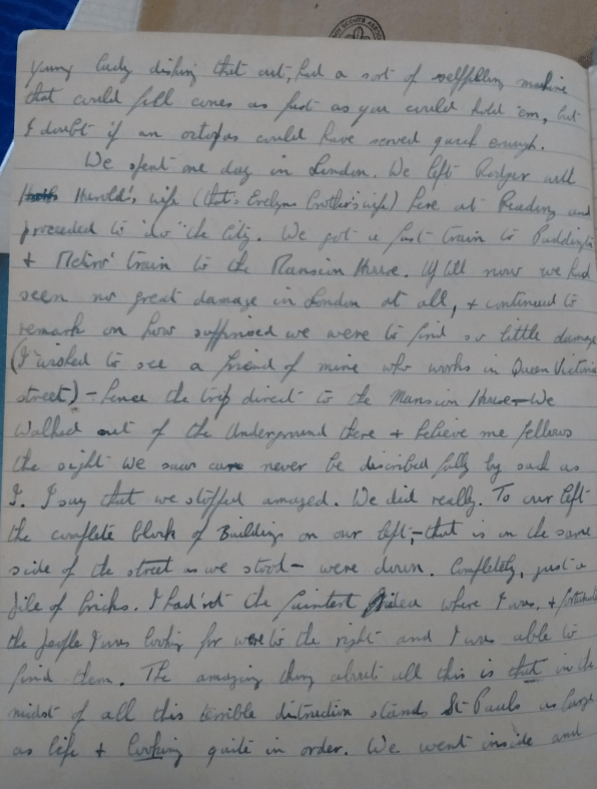 SCOUTS ASSOC
young lady dishing that out, had a sort of selffilling machine
that could fill cones as fast as you could hold 'em, but
I doubt if an octopus could have served quick enough.
We spent one day in London. We left Rodger with
Harold's wife (that's Evelyns brother's wife) here at Reading and
proceded to "do" the City. We got a fast train to Paddingto
+ Metro' train to the Mansion House. Up till now we had
seen no great damage in London at all, + continued to
remark on how supprised we were to find so little damage
(I wished to see a friend of mine who works in Queen Victoria
street) - hence the trip direct to the Mansion House - We
walked out of the Underground there + believe me fellows
the sight we saw can never be discribed fully by such as
I. I say that we stopped amazed. We did really. To our left
the complete block of Buildings on our left, - that is on the same
side of the street as we stood - were down. Completely, just a
pile of bricks. I had'nt the faintest idea where I was, + fortunate
the people I was looking for were to the right and I was able to
find them. The amazing thing about all this is that in the
midst of all this terrible distruction stands St Pauls as large
as life + looking quite in order. We went inside and